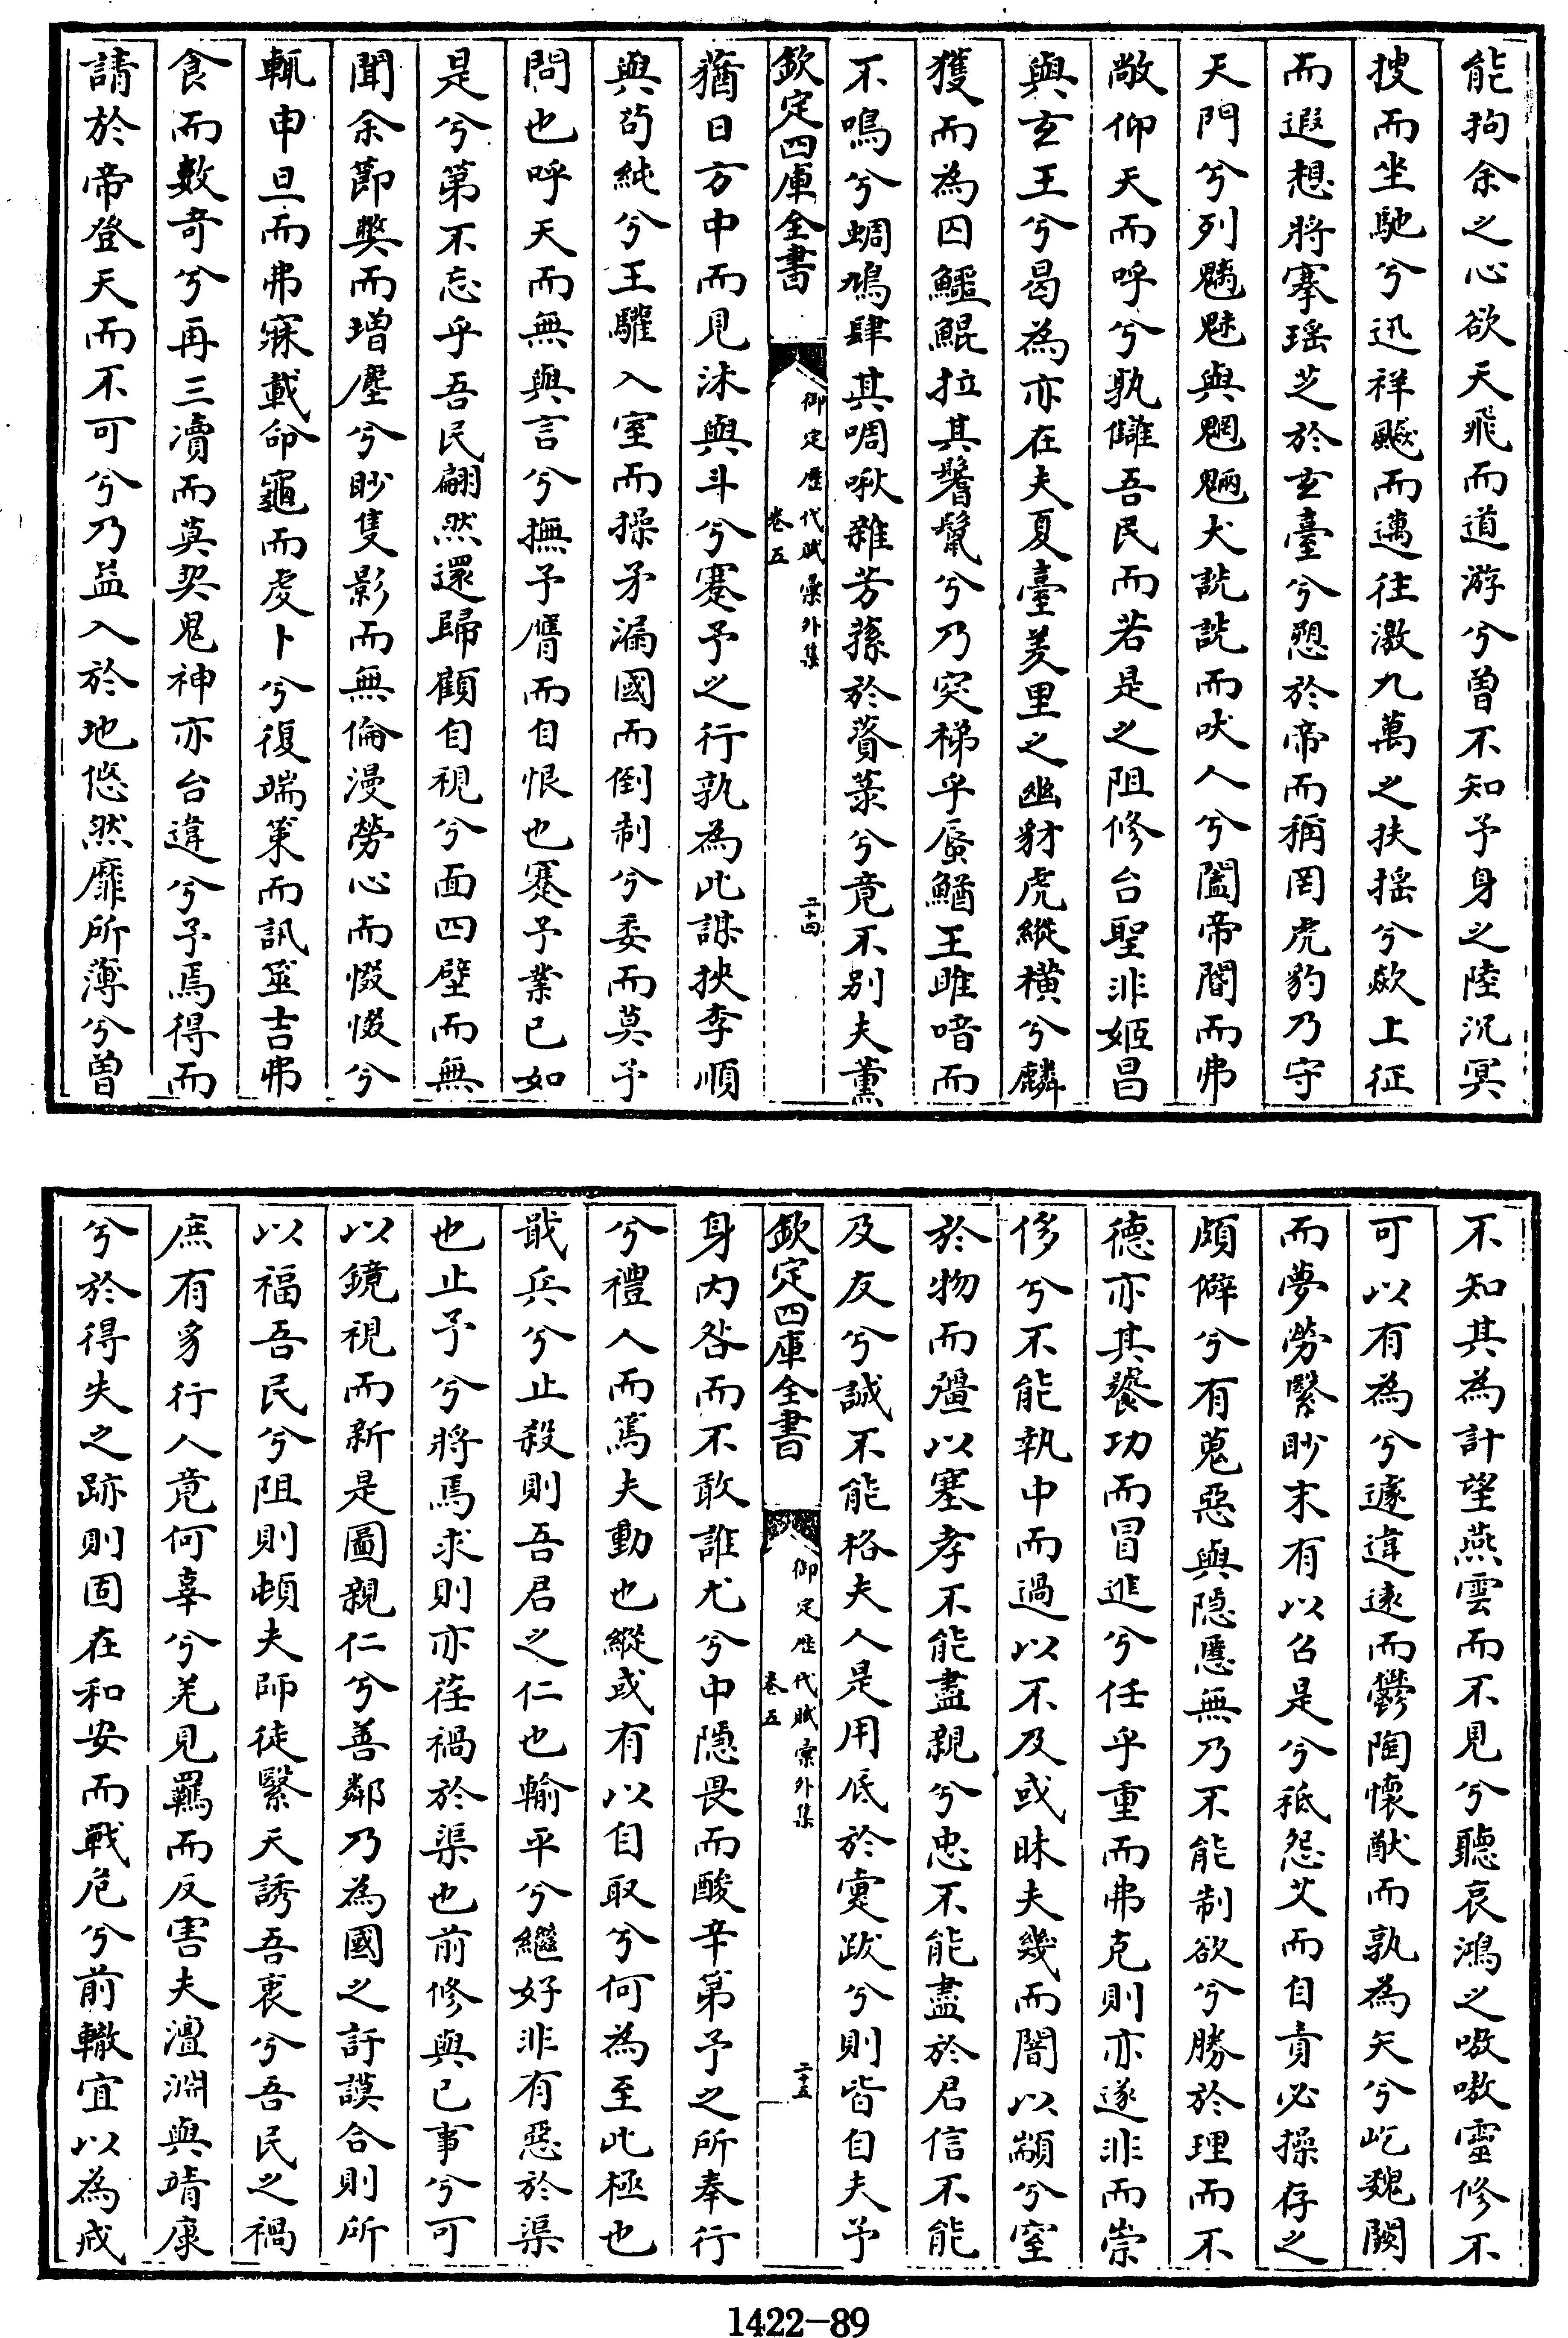 能拘余之心欲天飛而道游兮曽不知予身之陸沉冥
搜而坐馳兮迅祥飇而邁往激九萬之扶揺兮歘上征
而遐想將搴瑶芝於玄臺兮愬於帝而稱罔虎豹乃守
天門兮列魑魅與魍魎犬訦訦而吠人兮闔帝閽而弗
敞仰天而呼兮孰讎吾民而若是之阻修台聖非姬昌
與玄王兮曷為亦在夫夏臺羑里之幽豺虎縱横兮麟
獲而為囚鱷鯤拉其鬐鬛兮乃突梯乎蜃鰌王雎喑而
不鳴兮蜩鳩肆其啁啾雜芳蓀於薋菉兮竟不别夫薰
欽定四庫全書
御定歴代賦彚外集
卷五
二十四
蕕日方中而見沬與斗兮蹇予之行孰為此謀挾李順
與茍純兮王驩入室而操矛漏國而倒制兮委而莫予
問也呼天而無與言兮撫予膺而自恨也蹇予業已如
是兮第不忘乎吾民翩然還歸顧自視兮面四壁而無
聞余節獘而增塵兮眇隻影而無倫漫勞心而惙惙兮
輒申旦而弗寐載命龜而虔卜兮復端策而訊筮吉弗
食而數竒兮再三瀆而莫契鬼神亦台違兮予焉得而
請於帝登天而不可兮乃益入於地悠然靡所薄兮曽
不知其為計望燕雲而不見兮聽哀鴻之嗷嗷靈修不
可以有為兮遽違逺而鬱陶懷猷而孰為矢兮屹魏闕
而夢勞緊眇末有以召是兮秪怨艾而自責必操存之
頗僻兮有蒐惡與隠慝無乃不能制欲兮勝於理而不
德亦其饕功而冒進兮任乎重而弗克則亦遂非而崇
侈兮不能執中而過以不及或昧夫幾而闇以顓兮窒
於物而彊以塞孝不能盡親兮忠不能盡於君信不能
及友兮誠不能格夫人是用底於㚄跋兮則皆自夫予
欽定四庫全書
御定歴代賦彚外集
卷五
二十五
身内咎而不敢誰尤兮中隠畏而酸辛第予之所奉行
兮禮人而篤夫動也縱或有以自取兮何為至此極也
戢兵兮止殺則吾君之仁也輸平兮繼好非有惡於渠
也止予兮將焉求則亦荏禍於渠也前修與已事兮可
以鏡視而新是圖親仁兮善鄰乃為國之訏謨合則所
以福吾民兮阻則頓夫師徒繄天誘吾衷兮吾民之禍
庶有豸行人竟何辜兮羌見羈而反害夫澶淵與靖康
兮於得失之跡則固在和安而戰危兮前轍宜以為戒
1422-89